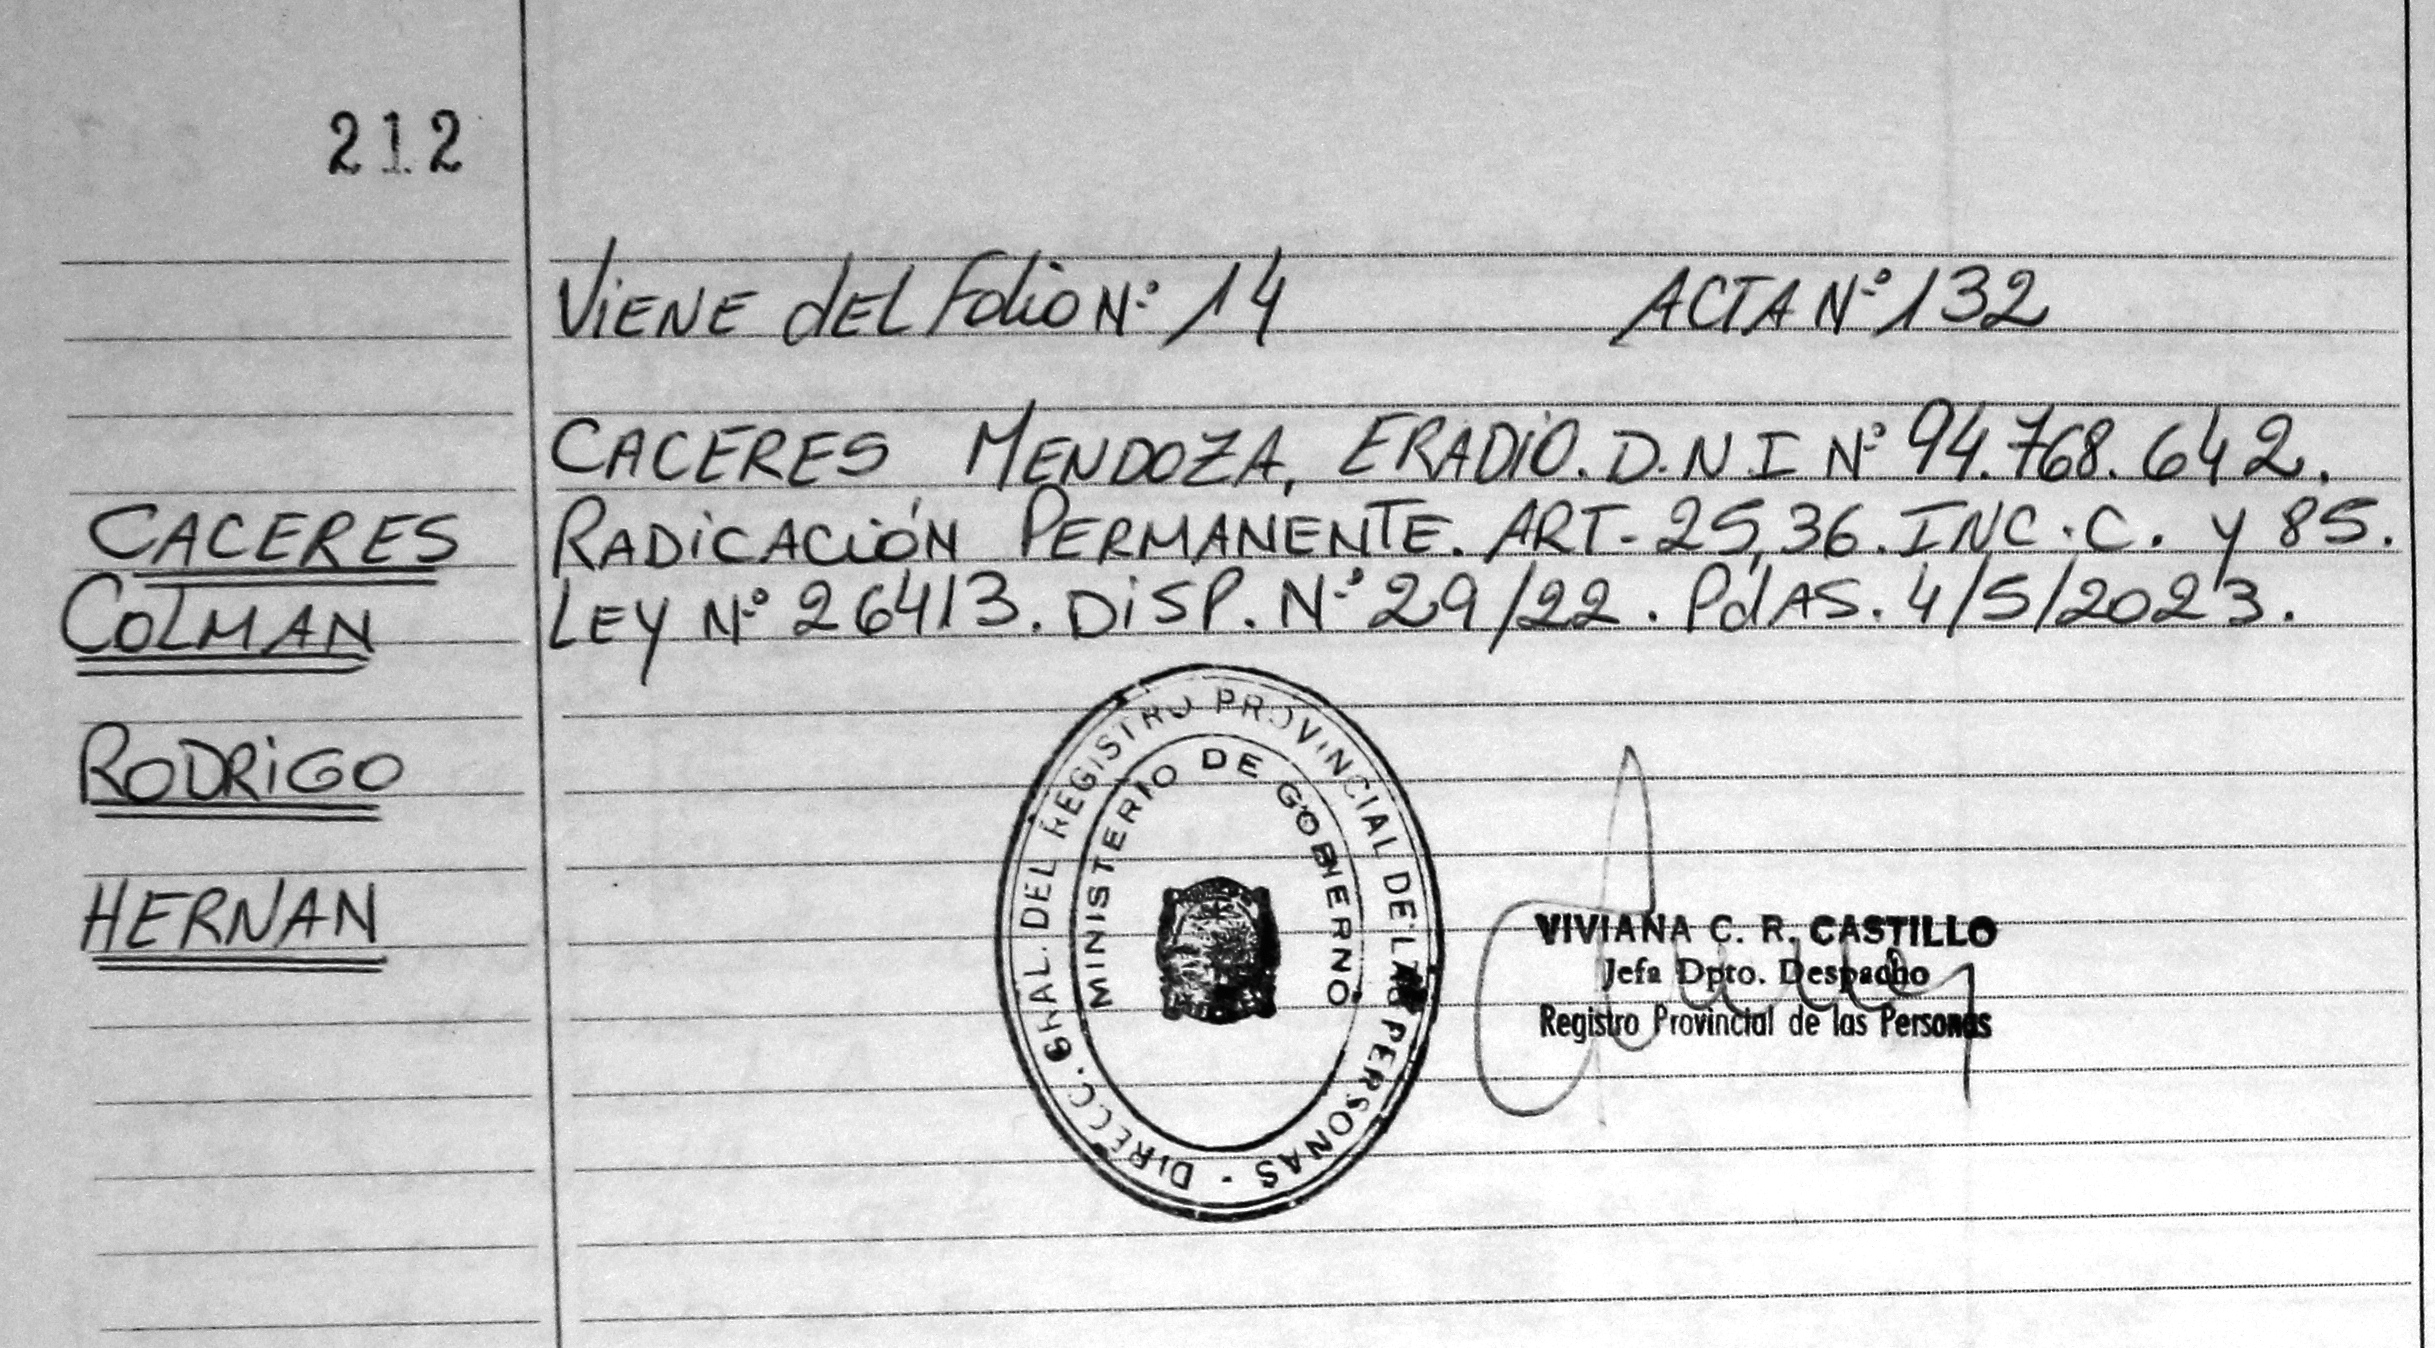 212
ViENE dEL Folio N.º 14 ACTA N.º 132
CACERES MENDOZA, ERADiO. D.N.I N.º 94.768.642.
CACERES
RADiCACióN PERMANENTE. ART-25,36. INC.C. y 85.
COLMAN
LEY N.º 26413. DiSP. N.º 29/22. PdAS. 4/5/2023.
RODRiGO
HERNAN
DIRECC. GRAL. DEL REGISTRO PROVINCIAL DE LAS PERSONAS -
MINISTERIO DE GOBIERNO
VIVIANA C. R. CASTILLO
Jefa Dpto. Despacho
Registro Provincial de las Personas